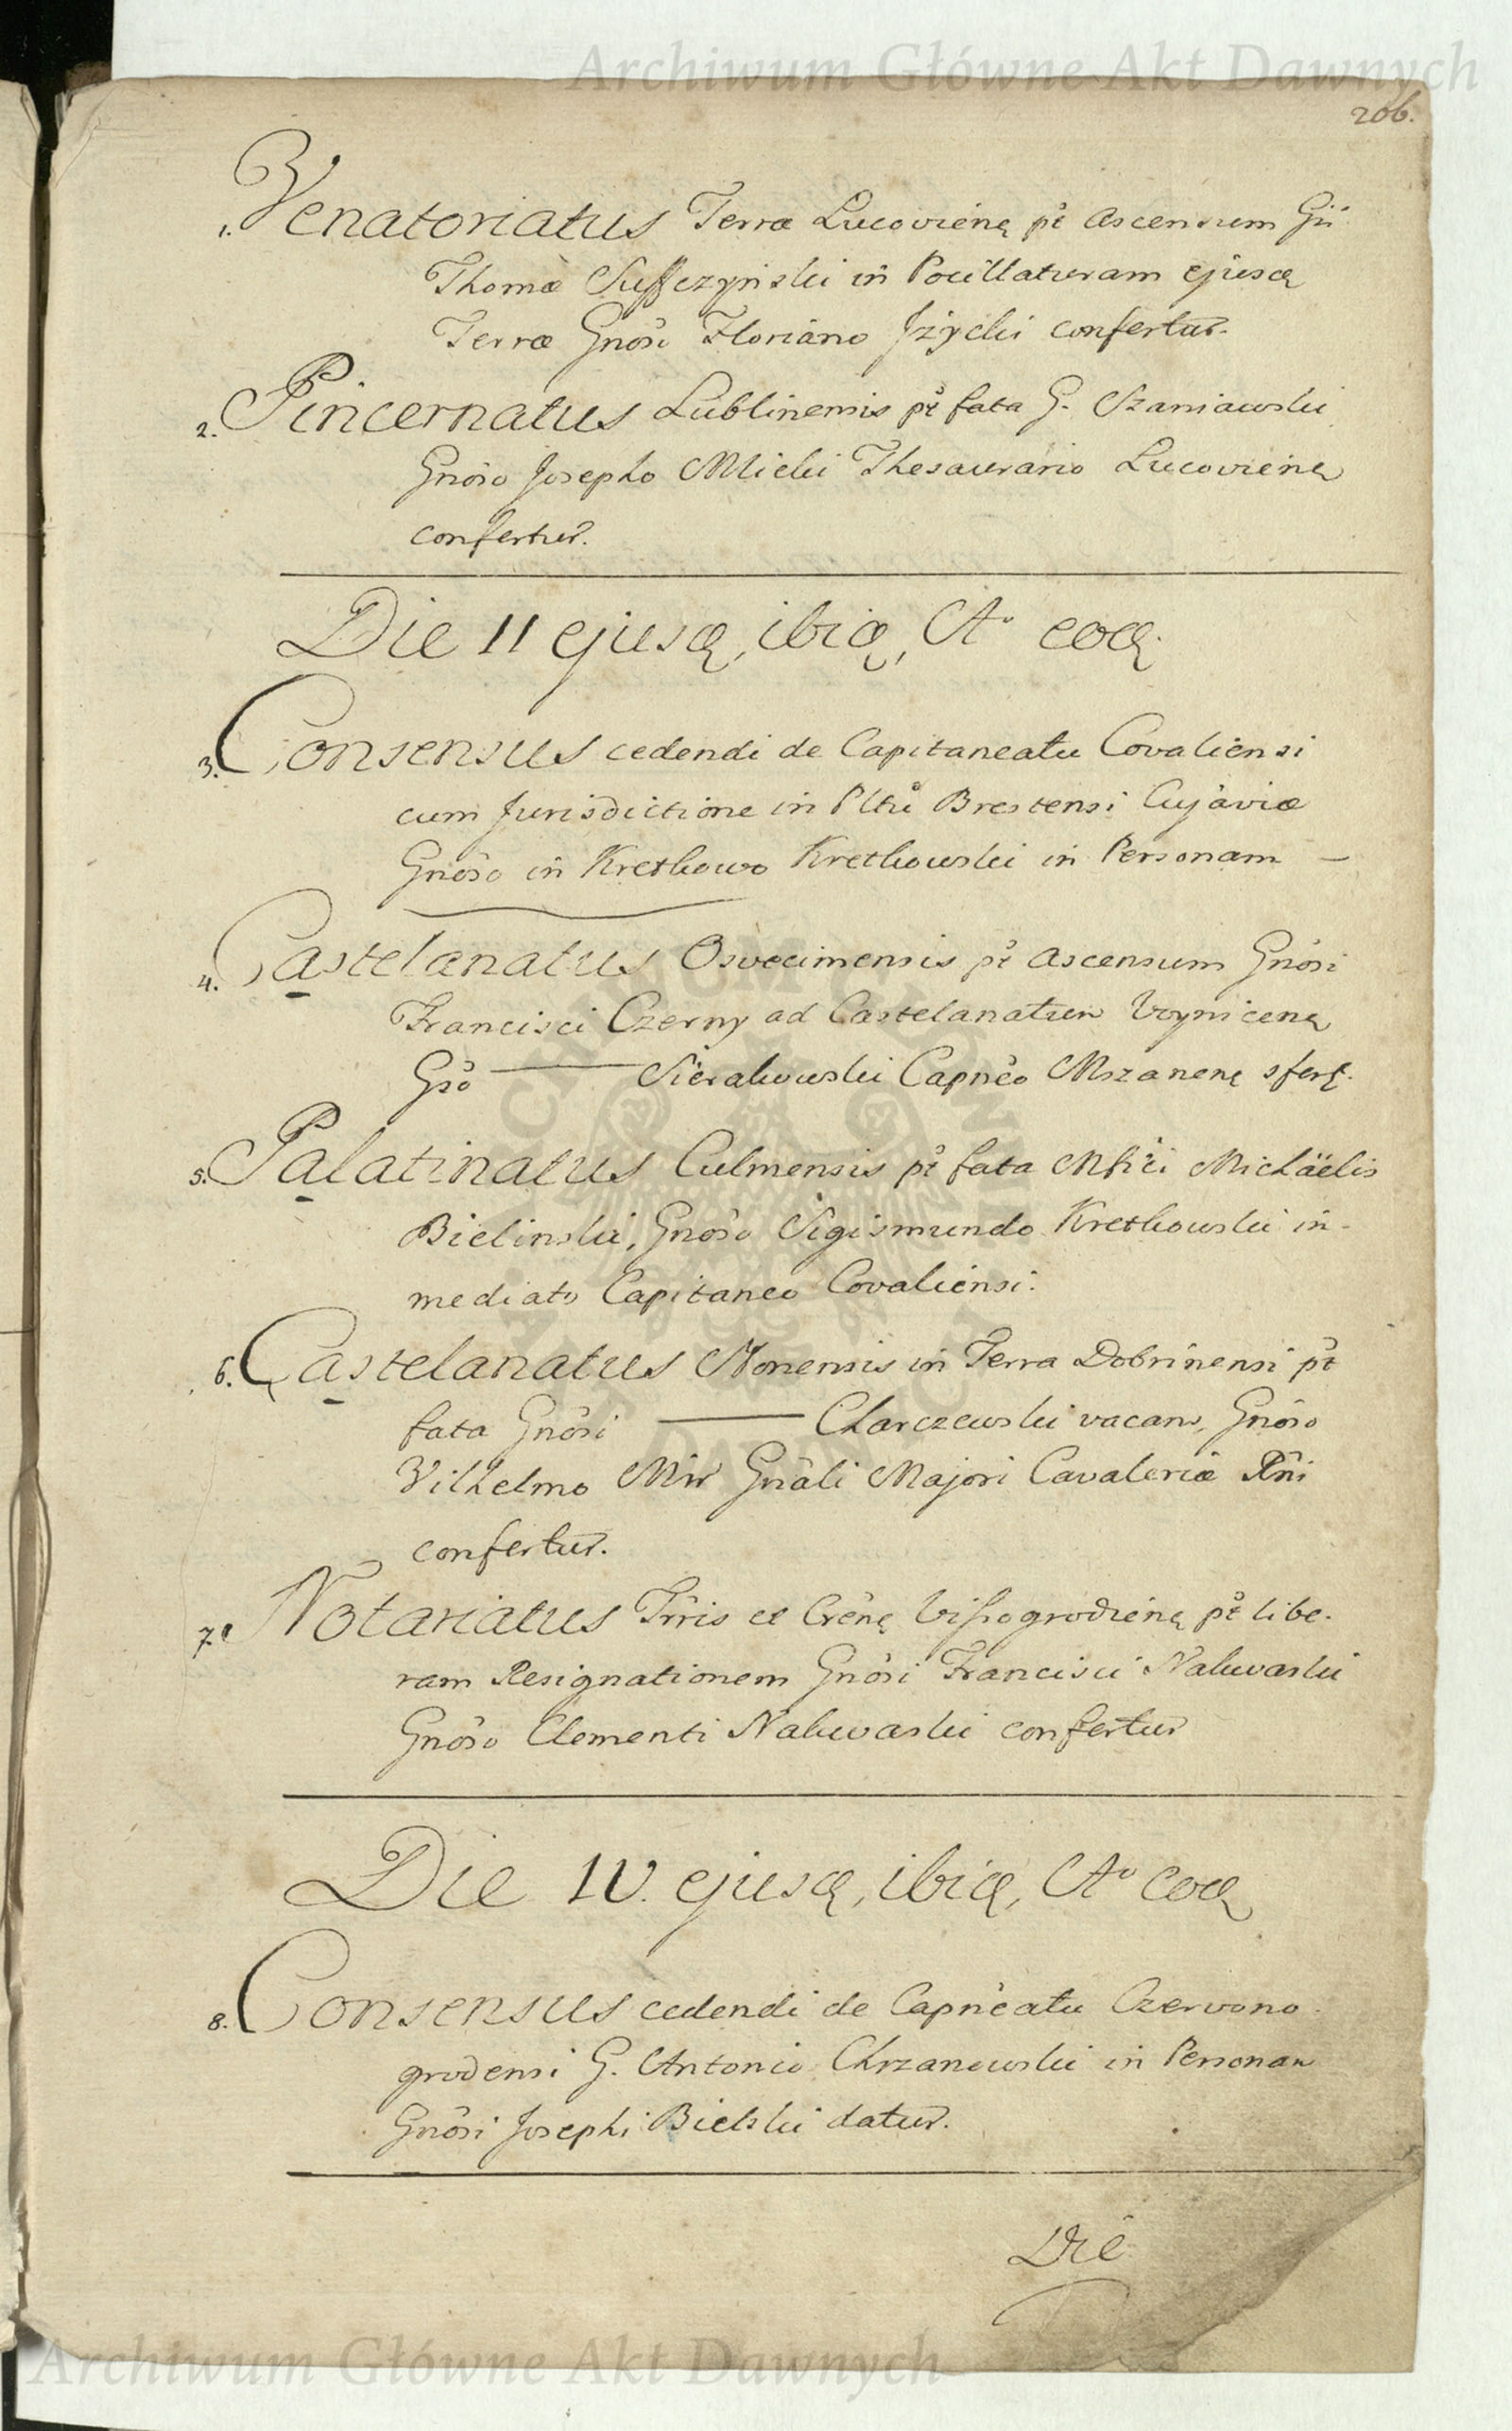 Archiwum Główne Akt Dawnych
206.
1. Venatoriatus Terræ Lucovienę pt ascensum Gii
Thomæ Suffczynski in Pocillaturam ejusdę
Terræ Gnoso Floriano Jżycki confertur.
2. Pincernatus Lublinensis pt fata G. Szaniawski
Gnoso Josepho Micki Thesaurario Lucovienę
confertur.
Die 11 ejusdę, ibidę, Ao eodę.
3. Consensus cedendi de Capitaneatu Covaliensi
cum Jurisdictione in Pltu Brestensi Cujaviæ
Gnoso in Kretkowo Kretkowski in Personam —
4. Castelanatus Osvecimensis pt ascensum Gnosi
Francisci Czerny ad Castelanatum Voynicenę
Gso — Sierakowski Capneo Mszanenę sfert.
5. Palatinatus Culmensis pt fata Mfici Michäelis
Bielinski, Gnoso Sigismundo Kretkowski in-
mediato Capitaneo Covaliensi.
6. Castelanatus Slonensis in Terra Dobrinensi pt
fata Gnosi — Charczewski vacans, Gnoso
Vilhelmo Mir Gnali Majori Cavaleriæ Rni
confertur.
7. Notariatus Trris et Crenę Vissogrodienę pt libe-
ram Resignationem Gnosi Francisci Nakwaski
Gnoso Clementi Nakwaski confertur
Die IV. ejusdę, ibidę, Ao eodę
8. Consensus cedendi de Capneatu Czerwono-
grodensi G. Antonio Chrzanowski in Personam
Gnosi Josephi Bielski datur.
Die
Archiwum Główne Akt Dawnych